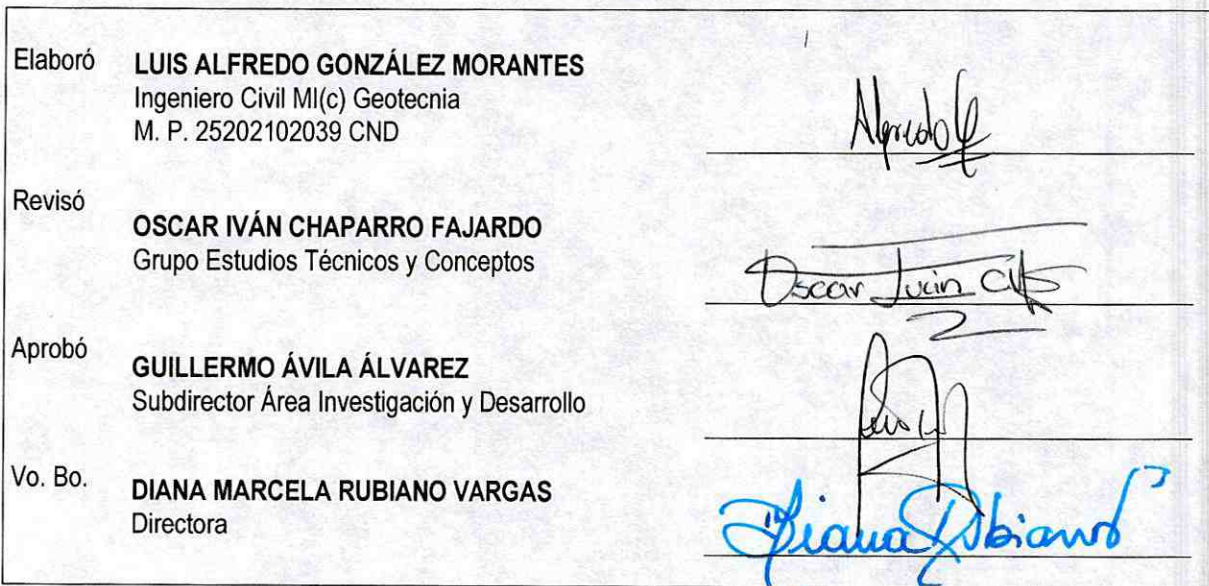 Elaboró
LUIS ALFREDO GONZÁLEZ MORANTES
Ingeniero Civil MI(c) Geotecnia
M. P. 25202102039 CND
Alfredo G
Revisó
OSCAR IVÁN CHAPARRO FAJARDO
Grupo Estudios Técnicos y Conceptos
Oscar Iván
Aprobó
GUILLERMO ÁVILA ÁLVAREZ
Subdirector Área Investigación y Desarrollo
Vo. Bo.
DIANA MARCELA RUBIANO VARGAS
Directora
Diana Rubiano